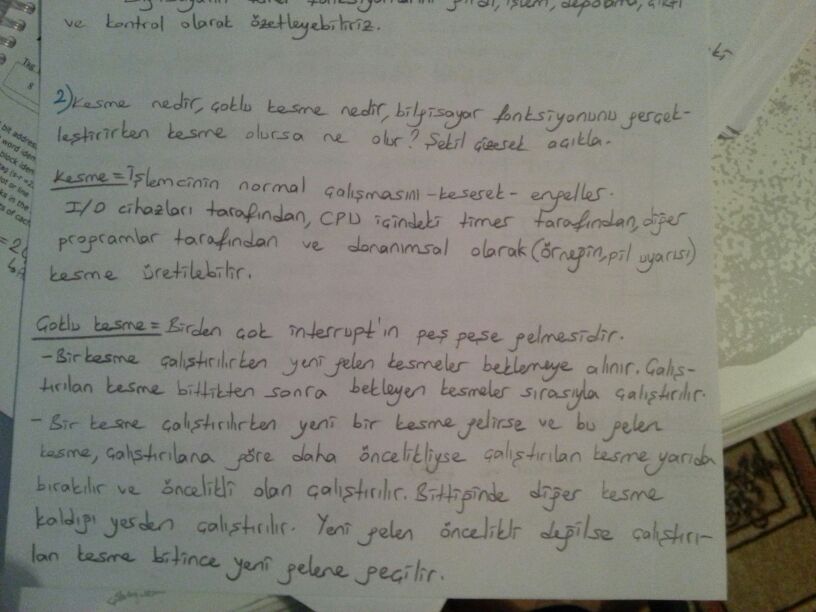 fonksiyonlarını girdi, işlem, depolama, çıktı
ve kontrol olarak özetleyebiliriz.
2) Kesme nedir, çoklu kesme nedir, bilgisayar fonksiyonunu gerçek-
leştirirken kesme olursa ne olur? Şekil çizerek açıkla.
Kesme = İşlemcinin normal çalışmasını -keserek- engeller.
I/O cihazları tarafından, CPU içindeki timer tarafından, diğer
programlar tarafından ve donanımsal olarak (örneğin, pil uyarısı)
kesme üretilebilir.
Çoklu kesme = Birden çok interrupt'ın peş peşe gelmesidir.
- Bir kesme çalıştırılırken yeni gelen kesmeler beklemeye alınır. Çalış-
tırılan kesme bittikten sonra bekleyen kesmeler sırasıyla çalıştırılır.
- Bir kesme çalıştırılırken yeni bir kesme gelirse ve bu gelen
kesme, çalıştırılana göre daha öncelikliyse çalıştırılan kesme yarıda
bırakılır ve öncelikli olan çalıştırılır. Bittiğinde diğer kesme
kaldığı yerden çalıştırılır. Yeni gelen öncelikli değilse çalıştırı-
lan kesme bitince yeni gelene geçilir.